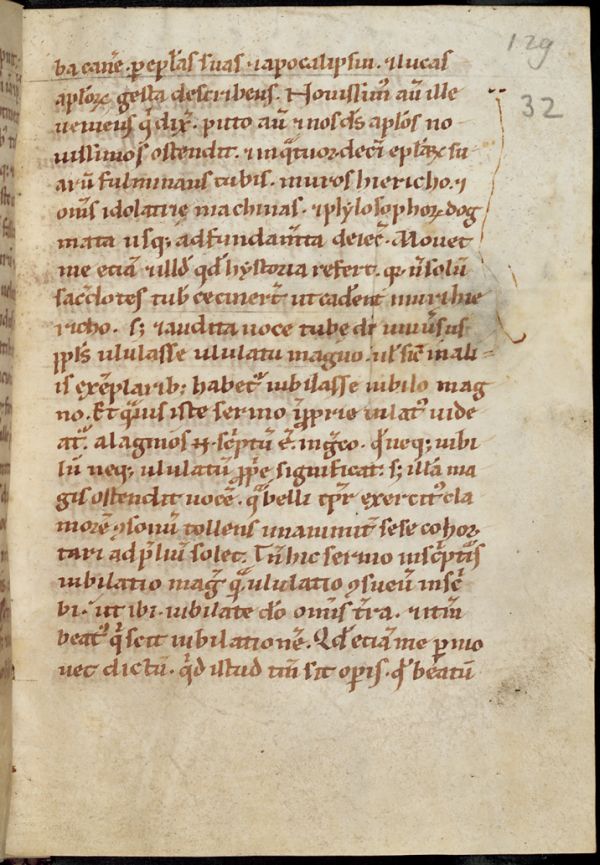 129
32
ba canē. p epl̄as suas. ⁊ apocalipsin. ⁊ lucas
aplōꝝ gesta describens. Nouissim᷒ aū ille
ueniens q̇ dix̄. puto aū ⁊ nos dꝭ apl̄os no
uissimos ostendit. ⁊ in q̄tuordeci epl̄aꝝ su
arū fulminans tubis. muros hiericho. ⁊
om̄s idolatrię machinas. ⁊ phylosophoꝝ dog
mata usq; ad fundam̄ta deiec̄. Mouet
me etiā ⁊ illd̄ qd̄ hystoria refert. qꝛ ñ solū
sac̄dotes tub̄ cecinert̄ ut cad̄ent muri hie
richo. s; ⁊ audita uoce tubę dr̄ uniūsus
ppl̄s ululasse ululatu magno. ul̄ sic̄ in ali-
is exēplarib; habet᷒ iubilasse iubilo mag
no. Et q̄uis iste sermo īpprie
at᷒. alagmos n̄ sc̄ptū ē. in gͣco. q̄ neq; iubi
lū neq; ululatū ꝓpe significat. s; illā ma
gis ostendit uocē. qͣ belli tp̄r exercit᷒ cla
morē ꝯsonū tollens unanimit̄ sese cohor
tari ad p̄liū solet. Tn̄ hic sermo in sc̄ptis
iubilatio mag̃ qͣ ululatio ꝯsueū insc̄
bi. ut ibi. iubilate dō om̄is t̄ra. ⁊ itm̄
beat᷒ q̇ scit iubilationē. Qd̄ etiā me pmo
uet dictū. qd̄ istud tm̄ sit opis. q̇ beatū